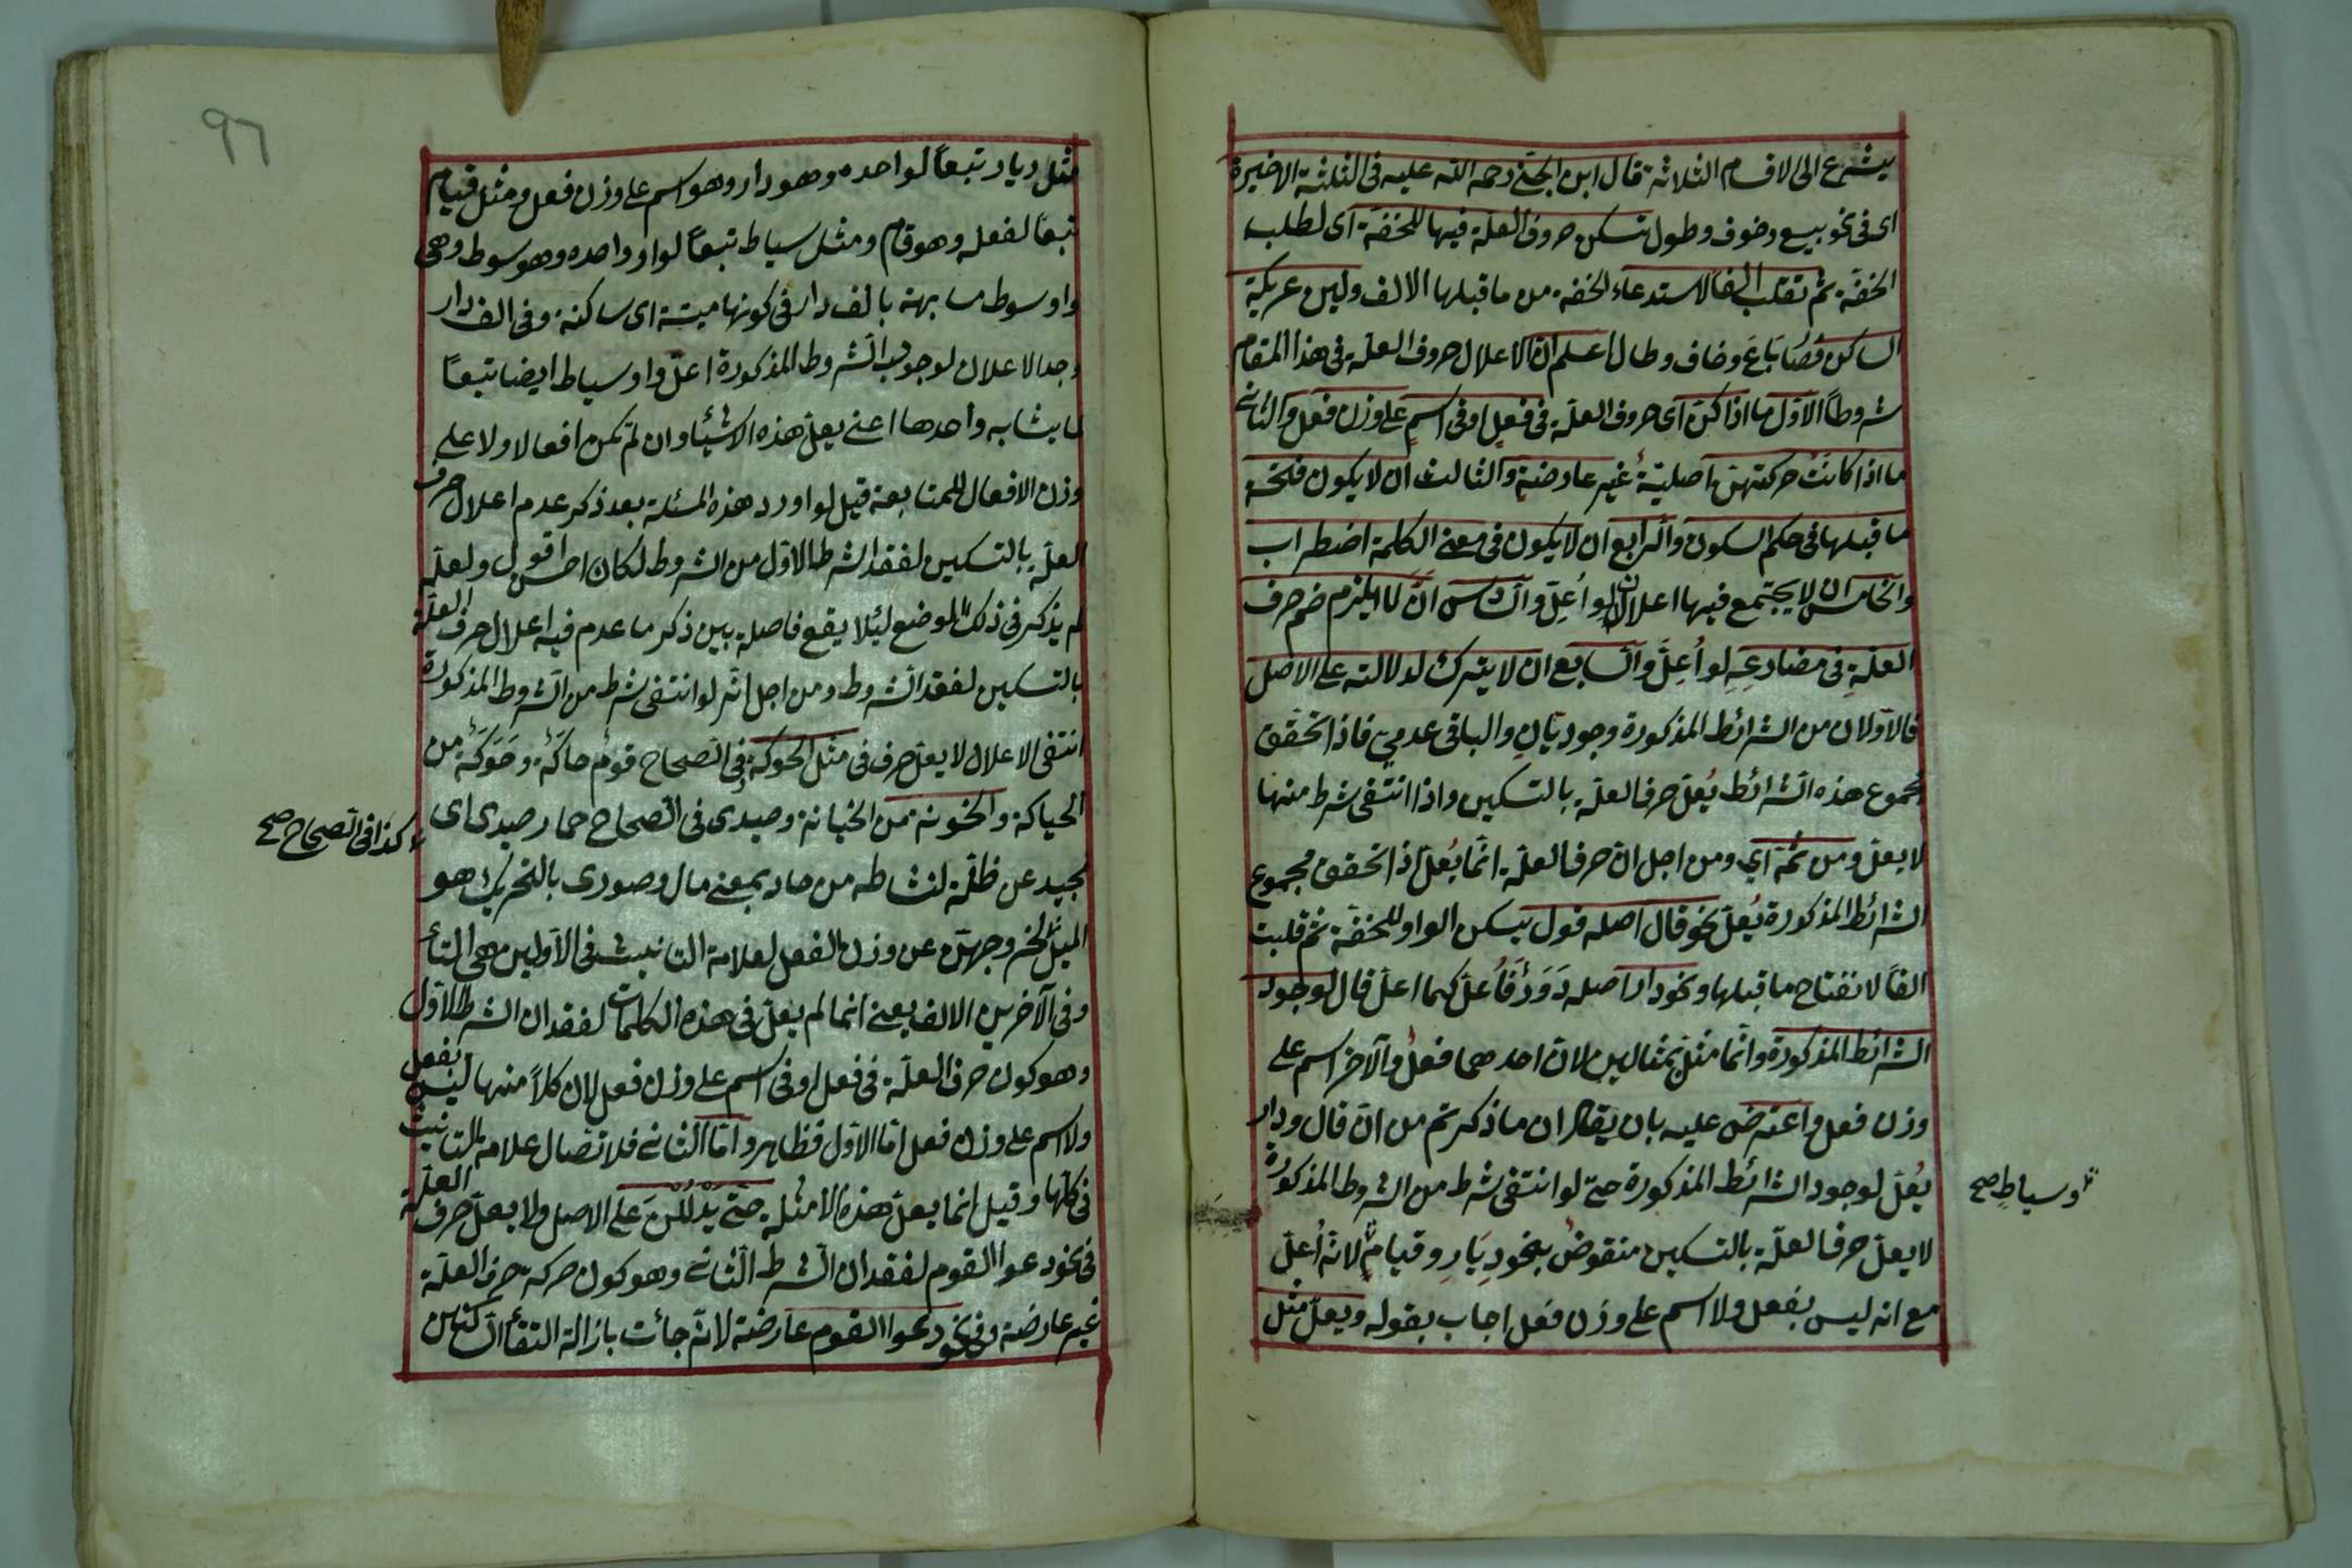 يشرع الى الاقسام الثلاثة قال ابن الجنى رحمه الله عليه فى الثلثة الاخيرة
اى فى نحو بيع وخوف وطول تسكن حروف العلة فيها للخفة اى لطلب
الخفة ثم تقلب الفا لاستدعاء الخفة من ما قبلها الالف ولين عريكة
الساكن فصُا بَاعَ وخاف وطال اعلم ان الاعلال حروف العلة فى هذا المقام
شروطاً الاوّل ما اذا كنّ اى حروف العلّة فى فعلٍ او فى اسمٍ على وزن فعل والثانى
ما اذا كانت حركتهن اصليّة غير عارضة والثالث ان لا يكون فتحة
ما قبلها فى حكم السكون والرابع ان لا يكون فى معنى الكلمة اضطراب
والخامس ان لا يجتمع فيها اعلالان لو اُعِلّ والسادس ان لا يلزم ضم حرف
العلّةِ فى مضارعِهِ لو اُعِلَّ والسابع ان لا يترك لدلالته على الاصل
فالاوّلان من الشرائط المذكورة وجوديّانِ والباقى عدمىّ فاذا تحقّق
مجموع هذه الشرائط يُعلّ حرف العلّة بالتسكين واذا انتفى شرط منها
لا يعلّ ومن ثمّة اى ومن اجل انّ حرف العلّة انّما يُعلّ اذا تحقق مجموع
الشرائط المذكورة يُعلّ نحو قال اصله قول يسكن الواو للخفّة ثم قلبت
الفاً لانفتاح ما قبلها ونحو دار اصله دَوَرَ فاُعلّ كما اعلّ قال لوجود
الشرائط المذكورة وانّما مثلّ بمثالين لان احدهما فعلٌ والآخر اسم على
وزن فعل واعترض عليه بان يقال ان ما ذكرتم من انّ قال ودار
يُعلّ لوجود الشرائط المذكورة حتّى لو انتفى شرط من الشروط المذكورة
لا يعلّ حرف العلّة بالتسكين منقوضٌ بنحو دِيَارِ وقيامٍ لانّه اُعلّ
مع انه ليس بفعل ولا اسم على وزن فعل اجاب بقوله ويعلّ مثل
وسياطٍ صح
٩٦
مثل ديار تبعاً لواحده وهو دار وهو اسم على وزن فعل ومثل قيام
تبعاً لفعله وهو قام ومثل سياط تبعاً لواو واحده وهو سوط وهى
واو سوط مشابهة بالف دار فى كونها ميتة اى ساكنة وفى الف دار
وجد الاعلال لوجود الشروط المذكورة اعلّ واو سياط ايضا تبعاً
لما يشابه واحدها اعنى يعلّ هذه الاشئا وان لم تكن افعالا ولا على
وزن الافعال للمتابعة قيل لو اورد هذه المسئلة بعد ذكر عدم اعلال حرف
العلّة بالتسكين لفقد الشرط الاوّل من الشروط لكان احسن اقول ولعلّه
لم يذكر فى ذلك الموضع لئلا يقع فاصلة بين ذكر ما عدم فيه اعلال حرف العلّة
بالتسكين لفقد الشروط ومن اجل انّه لو انتفى شرط من الشروط المذكورة
انتفى الاعلال لا يعلّ حرف فى مثل الحوكة فى الصحاح قوم حاكَة وحَوَكَة من
الحياكة والخونة من الخيانة وحيدى فى الصحاح حمار حيدى اى
كذا فى الصحاح صح
يحيد عن ظلّه لنشاطه من حاد بمعنى مال وصورى بالتحريك هو
الميل لخروجهنّ عن وزن الفعل لعلامة التانيث فى الاوّلين هى التأ
وفى الآخرين الالف يعنى انما لم يعلّ فى هذه الكلمات لفقدان الشرط الاوّل
وهو كون حرف العلّة فى فعل او فى اسم على وزن فعل لان كلاً منها ليس بفعل
ولا اسم على وزن فعل امّا الاوّل فظاهر وامّا الثانى فلاتصال علامة التانيث
فى كلّها وقيل انما يعلّ هذه الامثلة حتّى يَدْلُلْنَ على الاصل ولا يعلّ حرف العلّة
فى نحو دعوا القوم لفقدان الشرط الثانى وهو كون حركة حرف العلّة
غير عارضة وفى نحو دعوا القوم عارضة لانّه جائت بازالة التقأ الساكنين